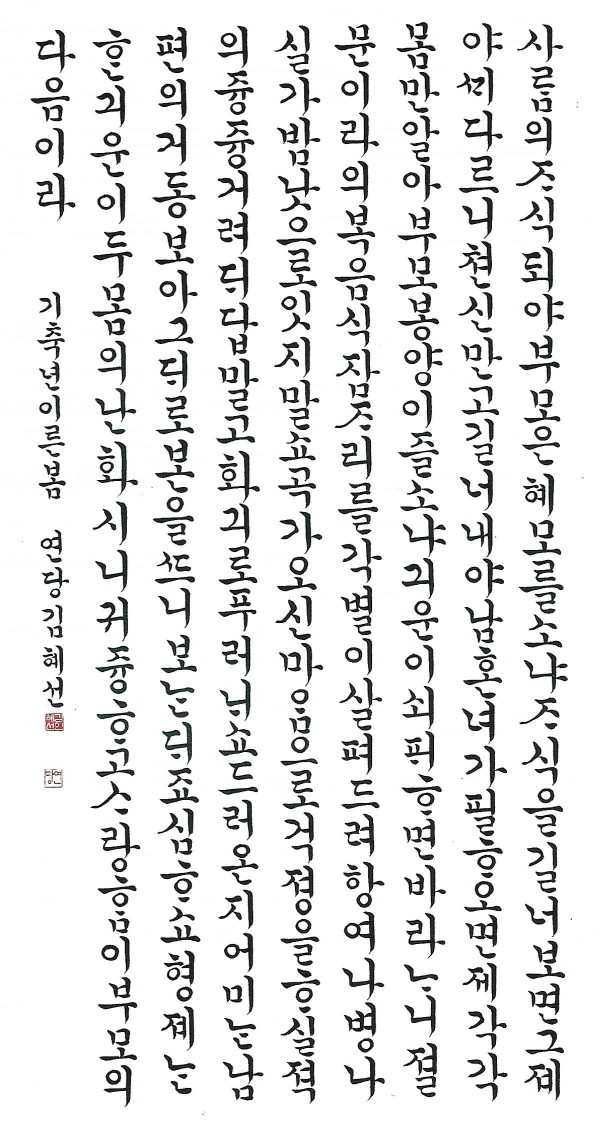 사ᄅᆞᆷ의ᄌᆞ식되야부모은혜모를소냐ᄌᆞ식을길너보면그졔
야ᄭᆡ다르니쳔신만고길너내야남혼녀가필ᄒᆞ오면제각각
몸만알아부모봉양이즐소냐긔운이쇠ᄑᆡᄒᆞ면바라ᄂᆞ니졀
믄이라의복음식잠ᄌᆞ리를각별이살펴드려항여나병나
실가밤낮으로잇지말쇼곡가오신마음으로걱졍을ᄒᆞ실젹
의즁즁거려ᄃᆡ답말고화긔로푸러ᄂᆡ쇼드러온지어미ᄂᆞᆫ남
편의거동보아그ᄃᆡ로본을ᄯᅳ니보ᄂᆞᆫᄃᆡ죠심ᄒᆞ쇼형졔ᄂᆞᆫ
ᄒᆞᆫ긔운이두몸의난화시니귀즁ᄒᆞ고ᄉᆞ랑ᄒᆞᆷ이부모의
다음이라
기축년이른봄 연당김혜선